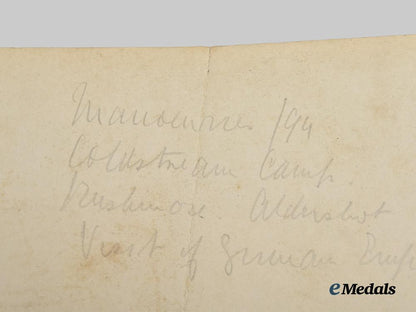 Manoeuvres /94
Coldstream Camp.
Rushmoor. Aldershot
Visit of German Emp
eMedals